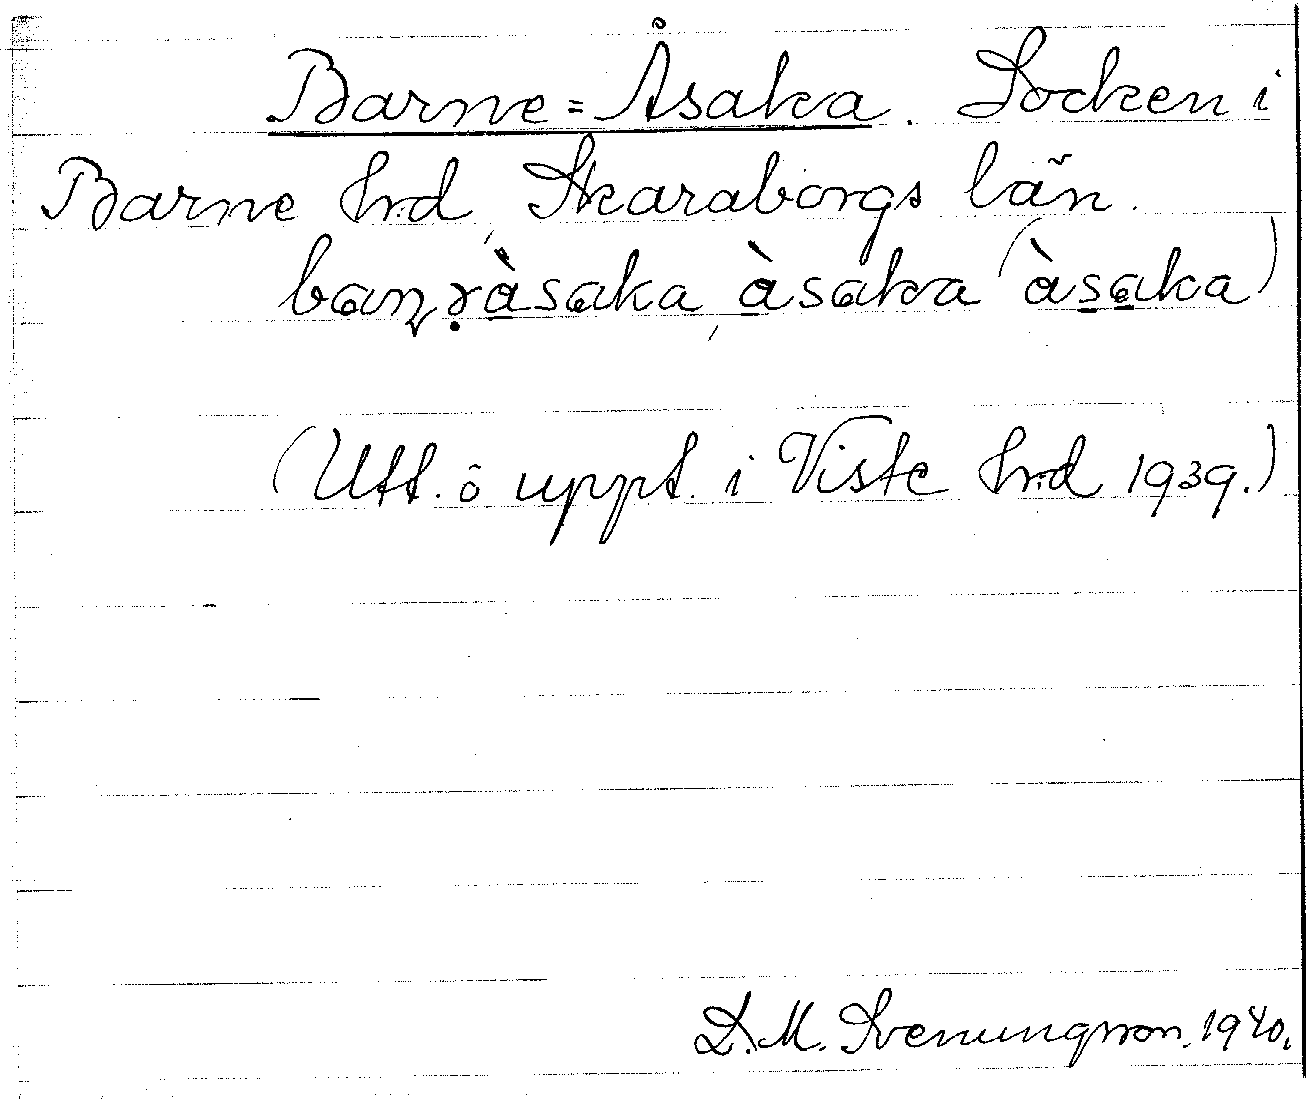 Barne=Åsaka. Socken i
Barne hrd, Skaraborgs län.
àsaka (àsaka)
(Utt. o uppt. i Viste hrd 1939.)
D. M. Svenungsson. 1940.